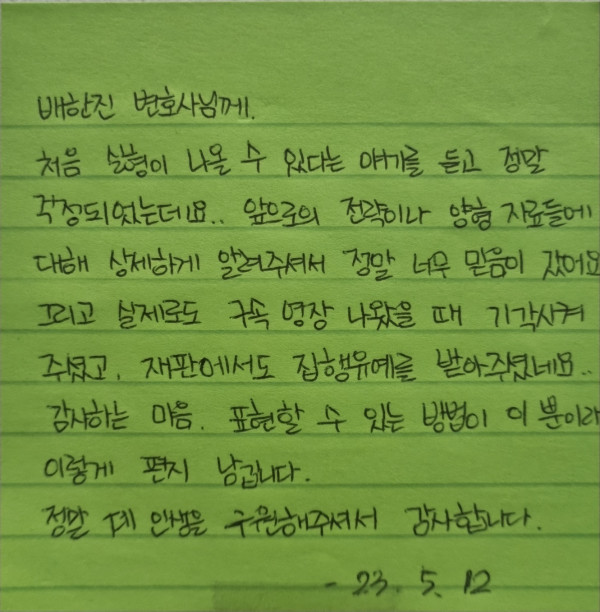 배한진 변호사님께.
처음 실형이 나올 수 있다는 얘기를 듣고 정말
걱정되었는데요.. 앞으로의 전략이나 양형 자료들에
대해 상세하게 알려주셔서 정말 너무 믿음이 갔어요
그리고 실제로도 구속 영장 나왔을 때 기각시켜
주셨고, 재판에서도 집행유예를 받아주셨네요..
감사하는 마음. 표현할 수 있는 방법이 이 뿐이라
이렇게 편지 남깁니다.
정말 제 인생을 구원해주셔서 감사합니다.
- 23. 5. 12